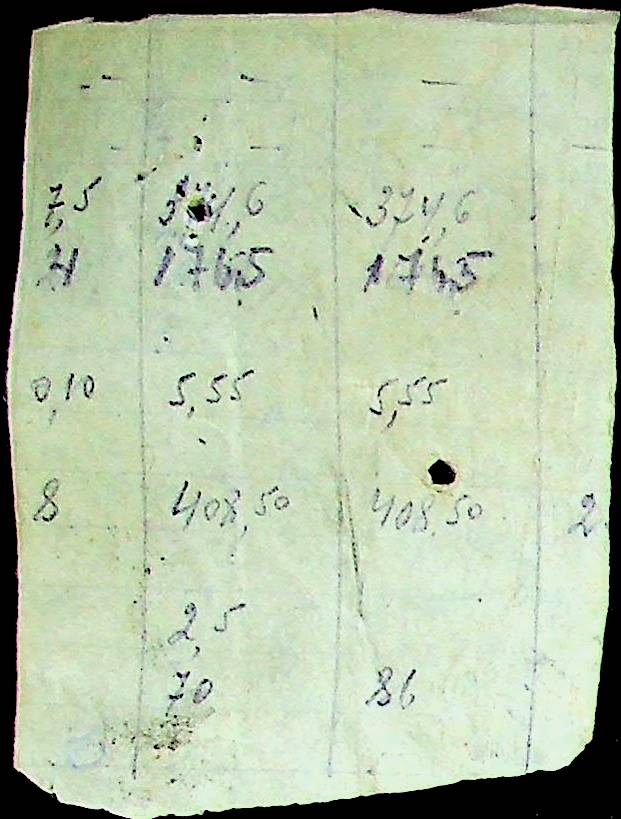 — — —
— — —
7,5 374,6 374,6
21 174,5 174,5
0,10 5,55 5,55
8 408,50 408,50 2
2,5
70 86